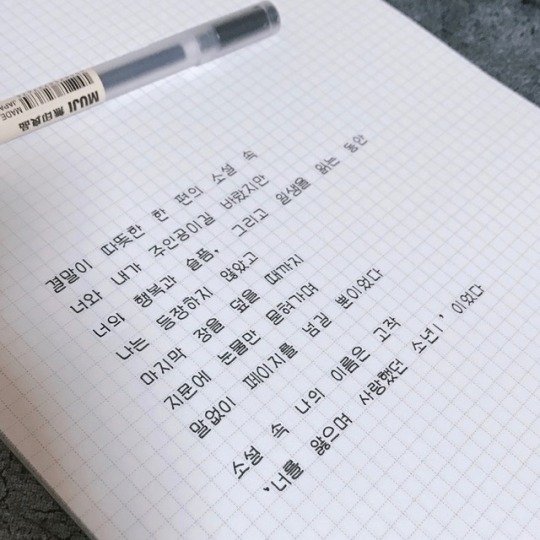 MUJI 無印良品
MADE
JAPA
결말이 따뜻한 한 편의 소설 속
너와 내가 주인공이길 바랐지만
너의 행복과 슬픔, 그리고 일생을 읽는 동안
나는 등장하지 않았고
마지막 장을 덮을 때까지
지문에 눈물만 묻혀가며
말없이 페이지를 넘길 뿐이었다
소설 속 나의 이름은 고작
'너를 잃으며 사랑했던 소년1' 이었다